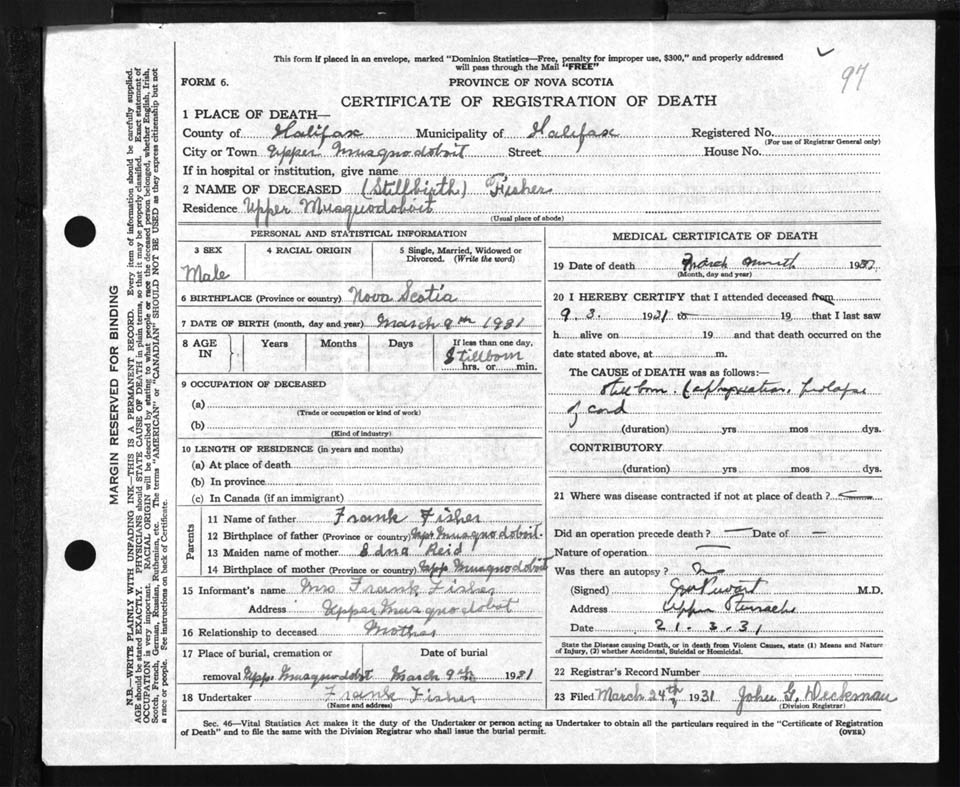 This form if placed in an envelope, marked "Dominion Statistics—Free, penalty for improper use, $300," and properly addressed
will pass through the Mail "FREE"
97
FORM 6.
PROVINCE OF NOVA SCOTIA
CERTIFICATE OF REGISTRATION OF DEATH
1 PLACE OF DEATH—
County of Halifax Municipality of Halifax Registered No.
(For use of Registrar General only)
City or Town Upper Musquodoboit Street House No.
If in hospital or institution, give name
2 NAME OF DECEASED (Stillbirth) Fisher
Residence Upper Musquodoboit
(Usual place of abode)
PERSONAL AND STATISTICAL INFORMATION
3 SEX 4 RACIAL ORIGIN 5 Single, Married, Widowed or
Divorced. (Write the word)
Male
6 BIRTHPLACE (Province or country) Nova Scotia
7 DATE OF BIRTH (month, day and year) March 9th 1931
8 AGE IN Years Months Days If less than one day,
Stillborn
hrs. or min.
9 OCCUPATION OF DECEASED
(a)
(Trade or occupation or kind of work)
(b)
(Kind of industry)
10 LENGTH OF RESIDENCE (in years and months)
(a) At place of death
(b) In province
(c) In Canada (if an immigrant)
Parents
11 Name of father Frank Fisher
12 Birthplace of father (Province or country) Upp. Musquodoboit.
13 Maiden name of mother Edna Reid
14 Birthplace of mother (Province or country) Upp Musquodoboit
15 Informant's name Mrs Frank Fisher
Address Upper Musquodobot
16 Relationship to deceased Mother
17 Place of burial, cremation or Date of burial
removal Upp. Musquodobt March 9th 1931
18 Undertaker Frank Fisher
(Name and address)
MEDICAL CERTIFICATE OF DEATH
19 Date of death 193
(Month, day and year)
20 I HEREBY CERTIFY that I attended deceased from
9. 3. 1931 to 19 that I last saw
h alive on 19 and that death occurred on the
date stated above, at m.
The CAUSE of DEATH was as follows:—
Still born. prolapse
of cord
(duration) yrs mos dys.
CONTRIBUTORY
(duration) yrs mos dys.
21 Where was disease contracted if not at place of death?
Did an operation precede death? — Date of —
Nature of operation —
Was there an autopsy? No
(Signed) M.D.
Address Upper
Date 21. 3. 31
State the Disease causing Death, or in death from Violent Causes, state (1) Means and Nature
of Injury, (2) whether Accidental, Suicidal or Homicidal.
22 Registrar's Record Number
23 Filed March 24th 1931 John G.
(Division Registrar)
Sec. 46—Vital Statistics Act makes it the duty of the Undertaker or person acting as Undertaker to obtain all the particulars required in the "Certificate of Registration
of Death" and to file the same with the Division Registrar who shall issue the burial permit.
(OVER)
MARGIN RESERVED FOR BINDING
N.B.—WRITE PLAINLY WITH UNFADING INK—THIS IS A PERMANENT RECORD. Every item of information should be carefully supplied.
AGE should be stated EXACTLY. PHYSICIANS should STATE CAUSE OF DEATH in plain terms, so that it may be properly classified. Exact statement of
OCCUPATION is very important. RACIAL ORIGIN will be described by stating to what people or race the deceased person belonged, whether English, Irish,
Scotch, French, German, Russian, Ruthenian, etc. The terms "AMERICAN" or "CANADIAN" SHOULD NOT BE USED as they express citizenship but not
a race or people. See instructions on back of Certificate.